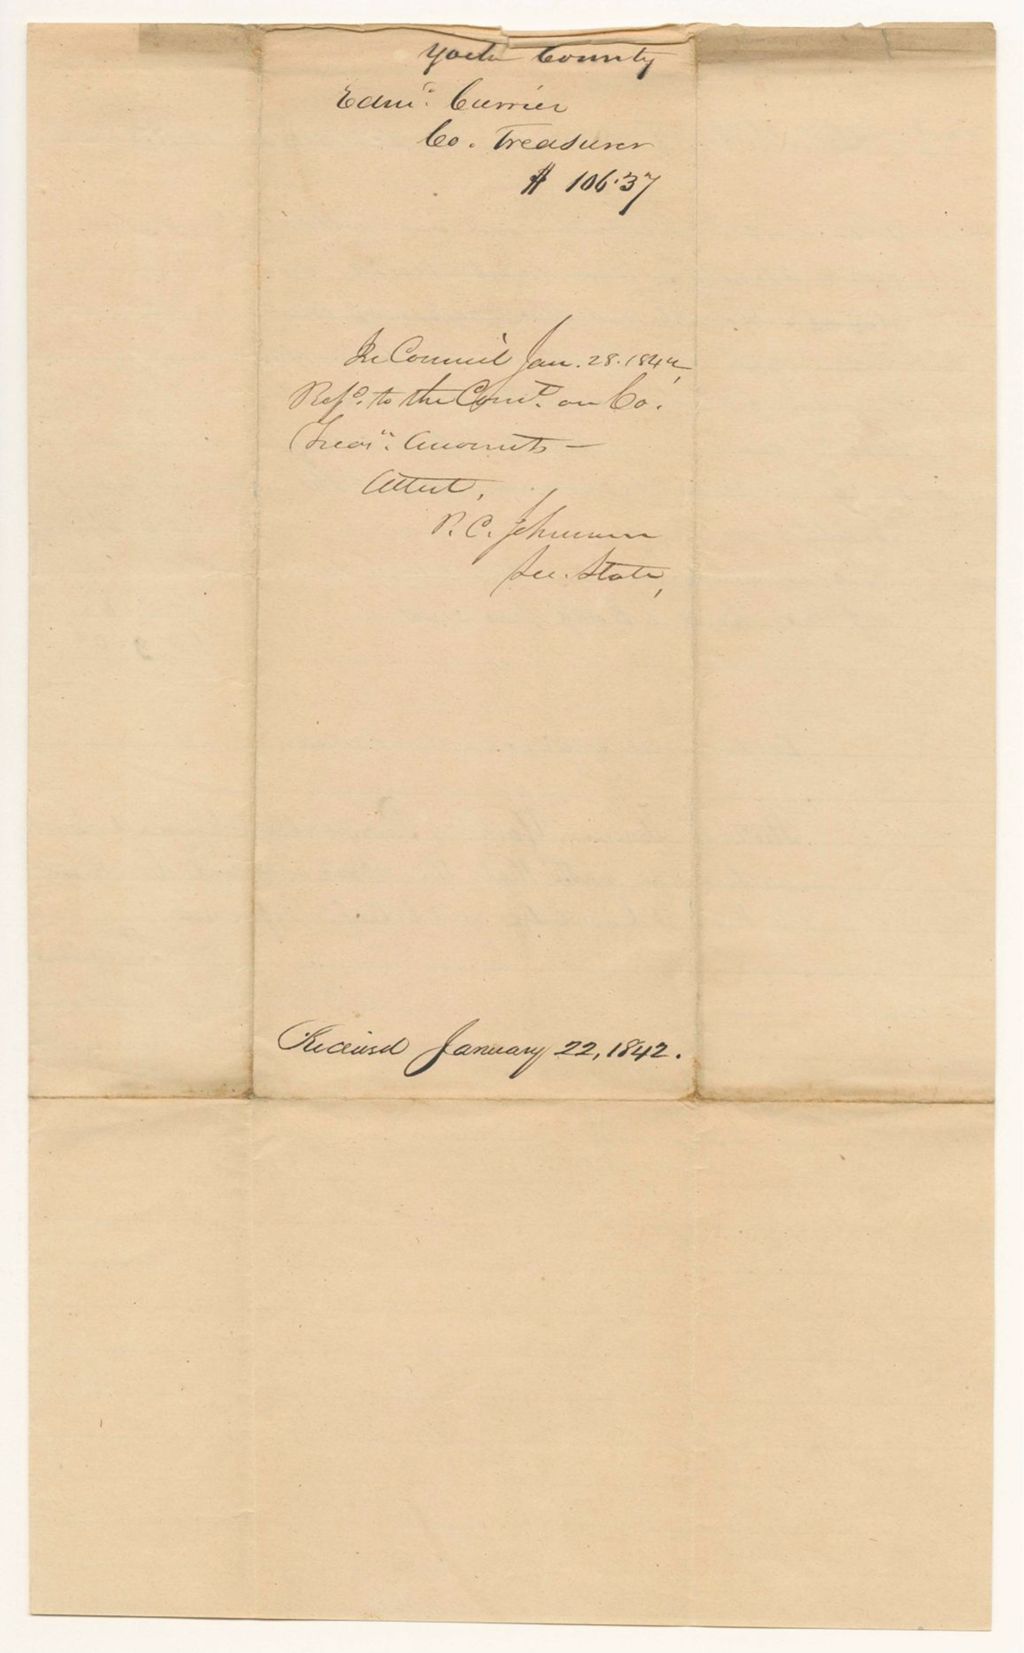 York County
Edmd. Currier
Co. Treasurer
$ 106.37
In Council Jan. 28. 1842,
Refd. to the Comt. on Co.
Treasrs. Accounts —
Attest,
P. C. Johnson
Sec. State,
Received January 22, 1842.